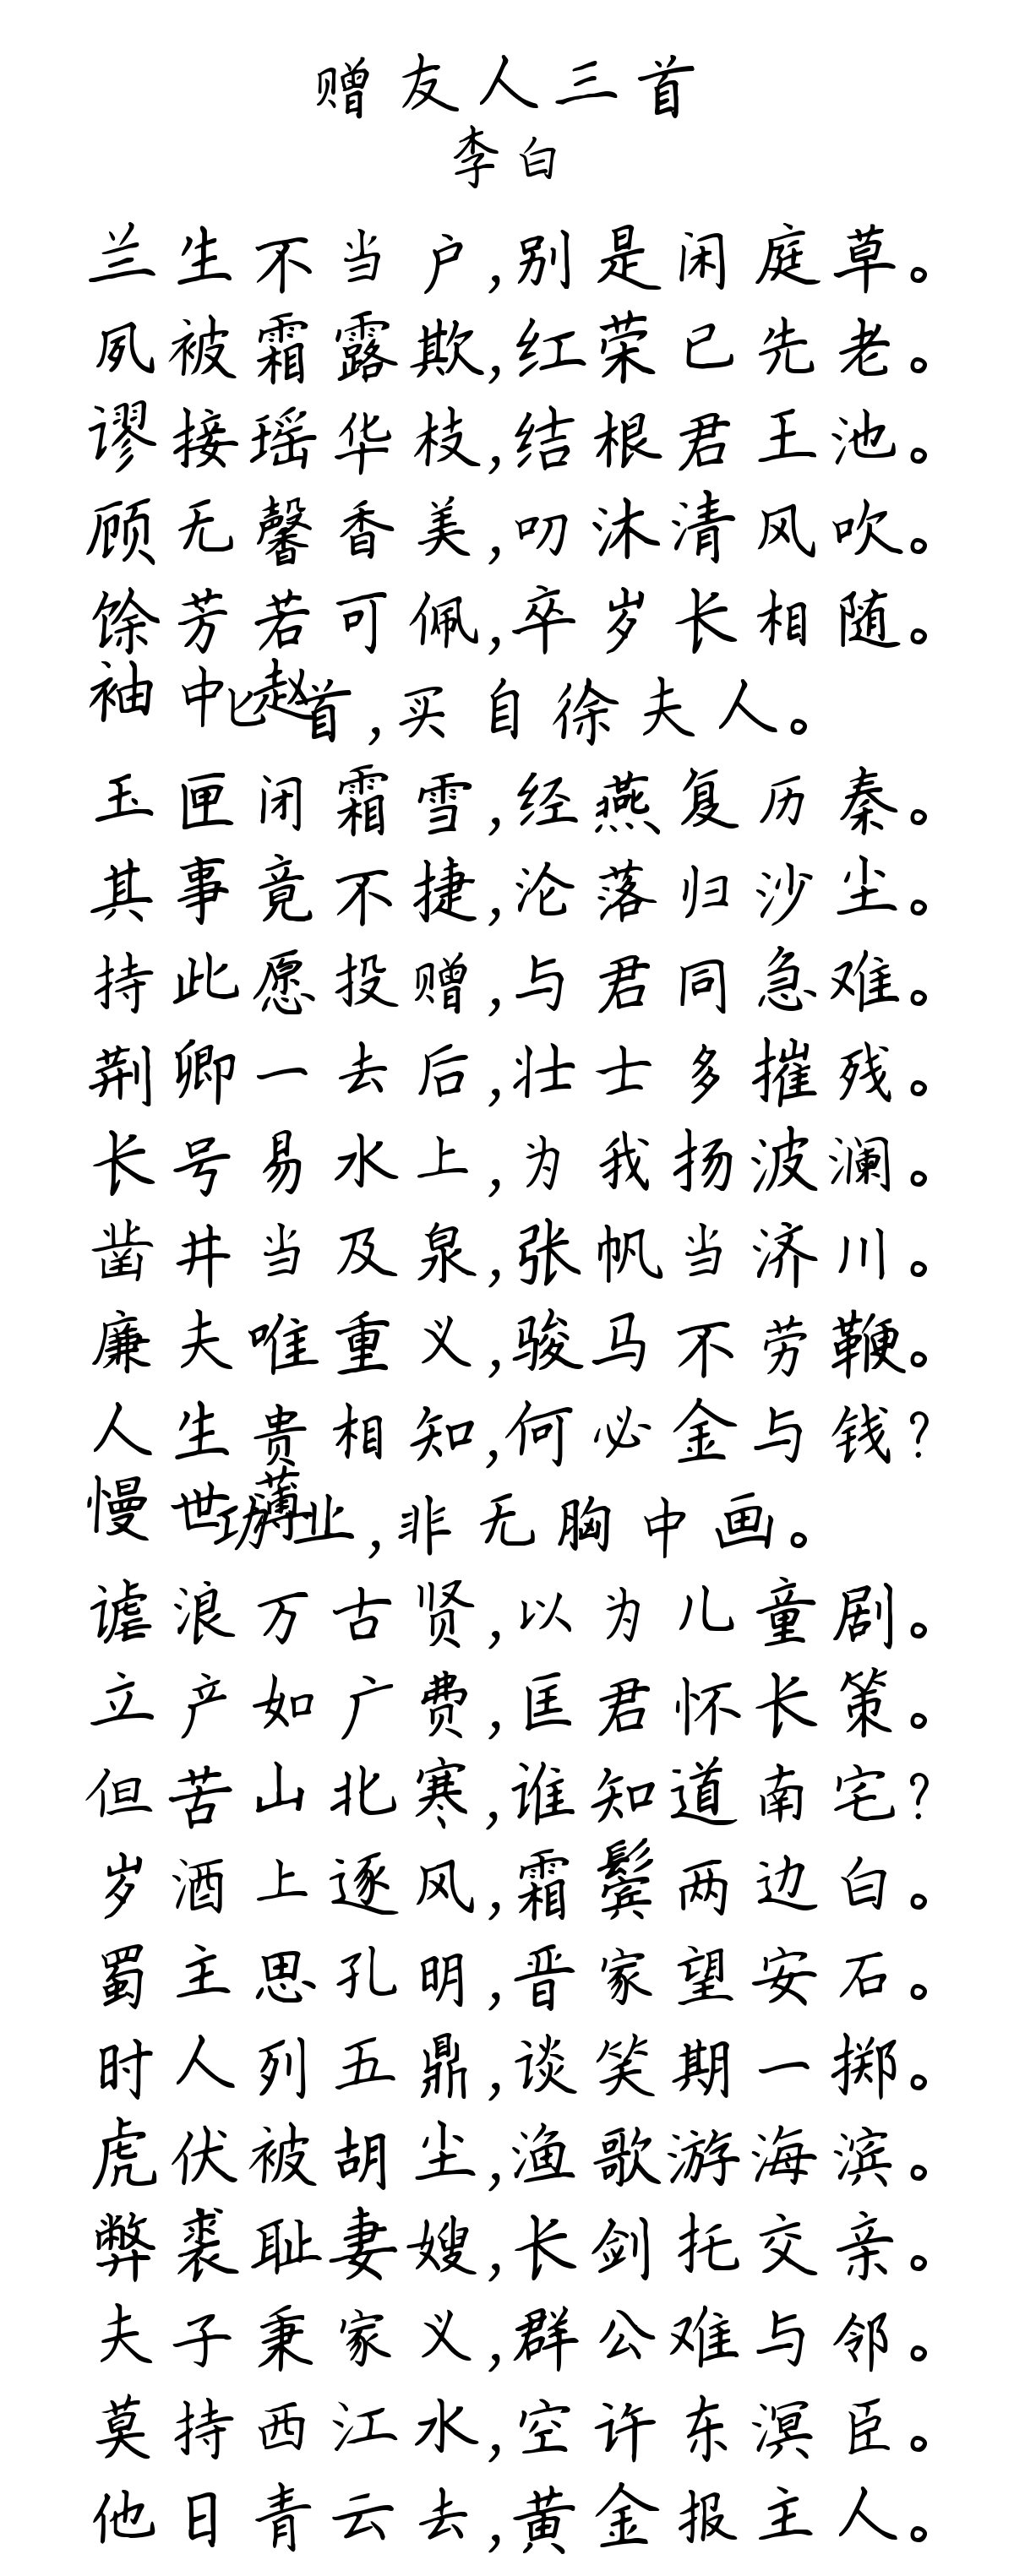 赠友人三首
李白
兰生不当户,别是闲庭草。
夙被霜露欺,红荣已先老。
谬接瑶华枝,结根君王池。
顾无馨香美,叨沐清风吹。
馀芳若可佩,卒岁长相随。
袖中赵匕首,买自徐夫人。
玉匣闭霜雪,经燕复历秦。
其事竟不捷,沦落归沙尘。
持此愿投赠,与君同急难。
荆卿一去后,壮士多摧残。
长号易水上,为我扬波澜。
凿井当及泉,张帆当济川。
廉夫唯重义,骏马不劳鞭。
人生贵相知,何必金与钱?
慢世薄功业,非无胸中画。
谑浪万古贤,以为儿童剧。
立产如广费,匡君怀长策。
但苦山北寒,谁知道南宅?
岁酒上逐风,霜鬓两边白。
蜀主思孔明,晋家望安石。
时人列五鼎,谈笑期一掷。
虎伏被胡尘,渔歌游海滨。
弊裘耻妻嫂,长剑托交亲。
夫子秉家义,群公难与邻。
莫持西江水,空许东溟臣。
他日青云去,黄金报主人。